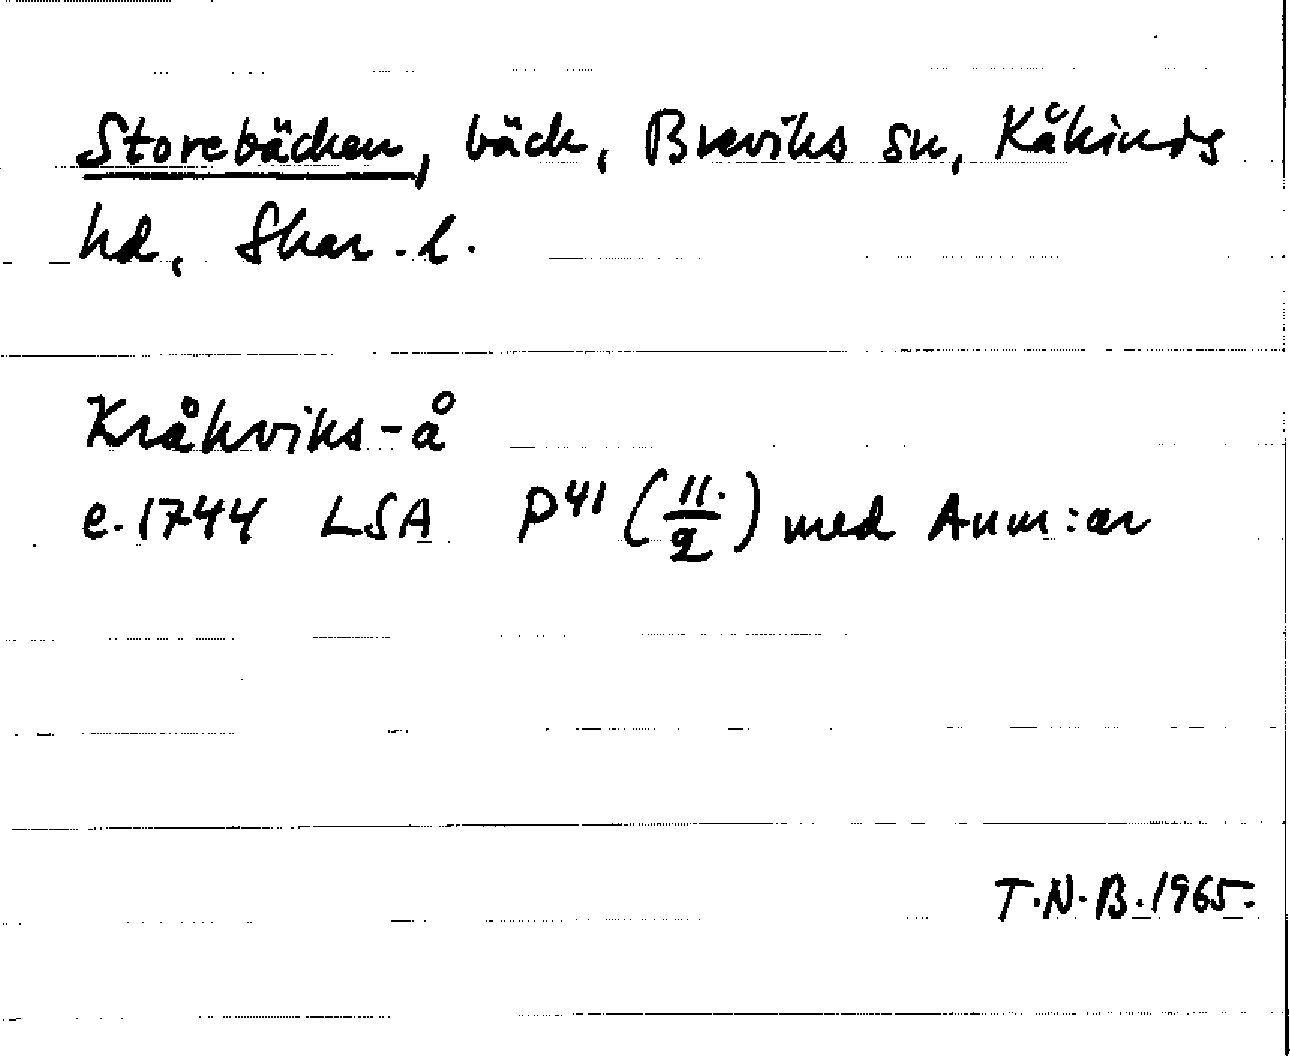 Storebäcken, bäck, Breviks sn, Kåkinds
hd, Skar. l.
Kråkviks-å
e. 1744 LSA P41 (11./2) med Anm:ar
T.N.B. 1965.